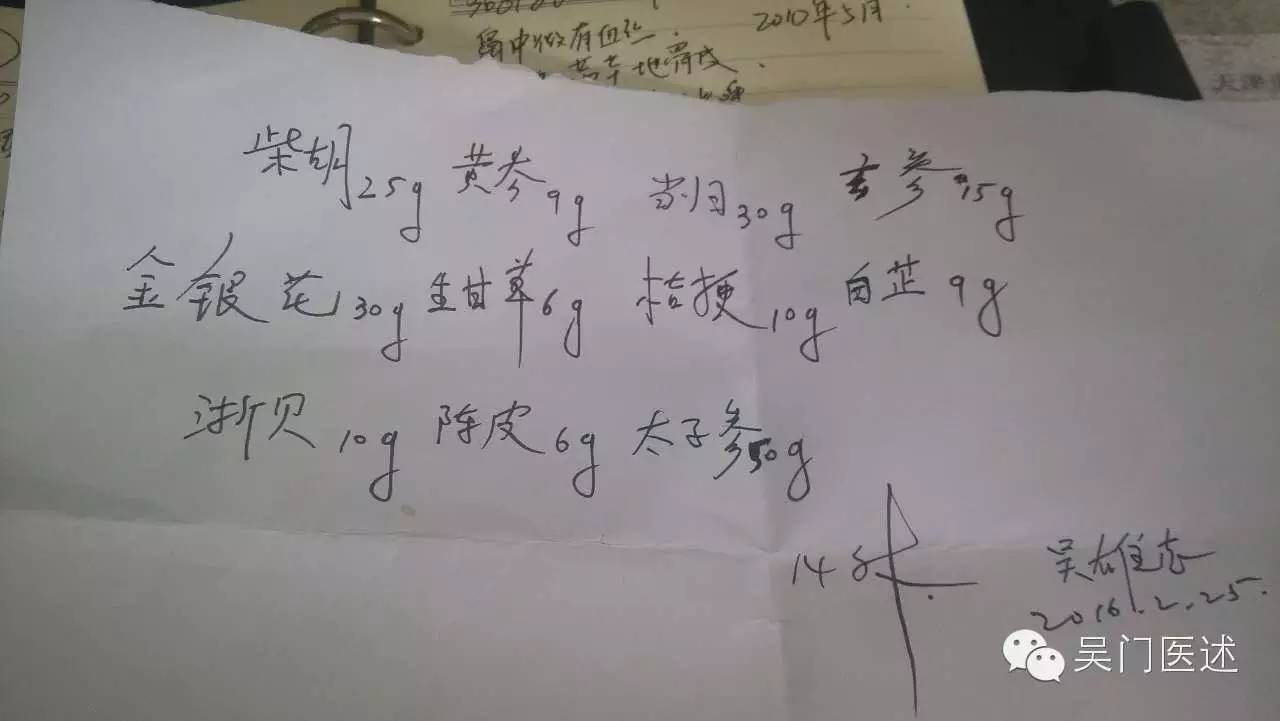 2010年5月.
柴胡25g 黄芩9g 当归30g 玄参15g
金银花30g 生甘草6g 桔梗10g 白芷9g
浙贝10g 陈皮6g 太子参50g
14付
吴雄志
2016.2.25.
吴门医述